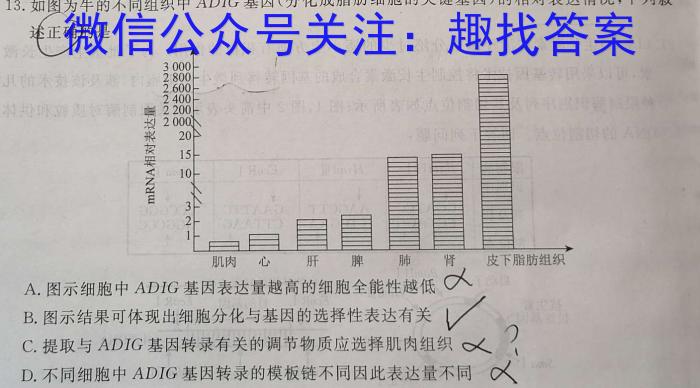 13. 如图为牛的不同组织中 ADIG 基因(分化成脂肪细胞的关键基因)的相对表达情况,下列叙
述正确的是
微信公众号关注：趣找答案
mRNA相对表达量
3 000
2 800
2 600
2 400
2 200
2 000
20
15
10
3
2
1
肌肉 心 肝 脾 肺 肾 皮下脂肪组织
A. 图示细胞中 ADIG 基因表达量越高的细胞全能性越低
B. 图示结果可体现出细胞分化与基因的选择性表达有关
C. 提取与 ADIG 基因转录有关的调节物质应选择肌肉组织
D. 不同细胞中 ADIG 基因转录的模板链不同因此表达量不同